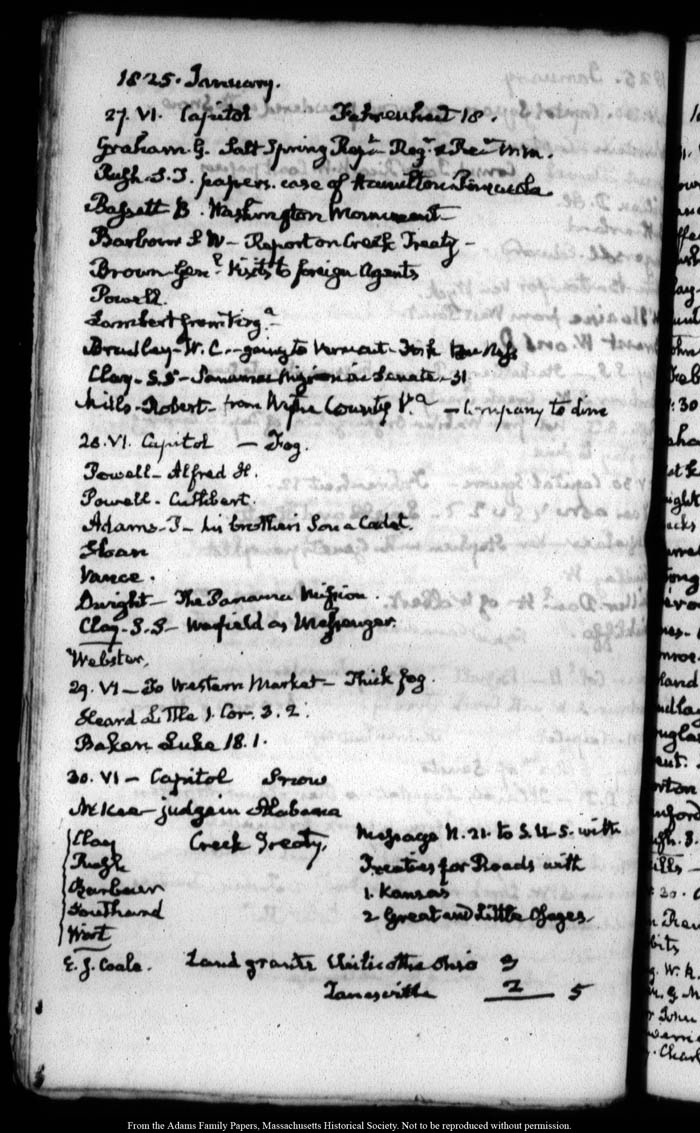 1825. January.
27. VI. Capitol Fahrenheit 18.
Graham. G. Salt Spring Rept. Regr. & Recr.
Rush. S.T. papers. case of Hamilton Pensacola
Bassett B. Washington Monument
Barbour S W— Report on Creek Treaty—
Brown Genl. Visits to foreign Agents
Powell.
Lambert from Virga.—
Bradley—W. C.—going to Vermont—
Clay—S.S—Panama Mission in Senate—31
Mills—Robert—from Wythe County Va.—Company to dine
28. VI. Capitol — Fog.
Powell—Alfred H.
Powell—Cuthbert.
Adams—T— his brother's Son a Cadet.
Sloan
Vance.
Dwight—The Panama Mission.
Clay—S.S—Warfield as Messenger.
Webster.
29. VI—To Western Market—Thick fog.
Heard Little 1. Cor. 3. 2.
Baker Luke 18. 1.
30. VI— Capitol Snow
McKee—judge in Alabama
Clay Creek Treaty. Message N. 21. to S.U.S. with
Rush Treaties for Roads with
Barbour 1. Kansas
Southard 2 Great and Little Osages
Wirt
E. J. Coale. Land grants Chilicothe Ohio 3
Zanesville 2 5
From the Adams Family Papers, Massachusetts Historical Society. Not to be reproduced without permission.